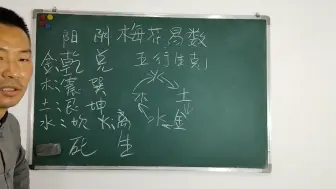 阳 阴 梅花易数
金:乾 兑 五行生克
木:震 巽 火
土:艮 坤 木 土
水:坎 火:离 水 金
死 生